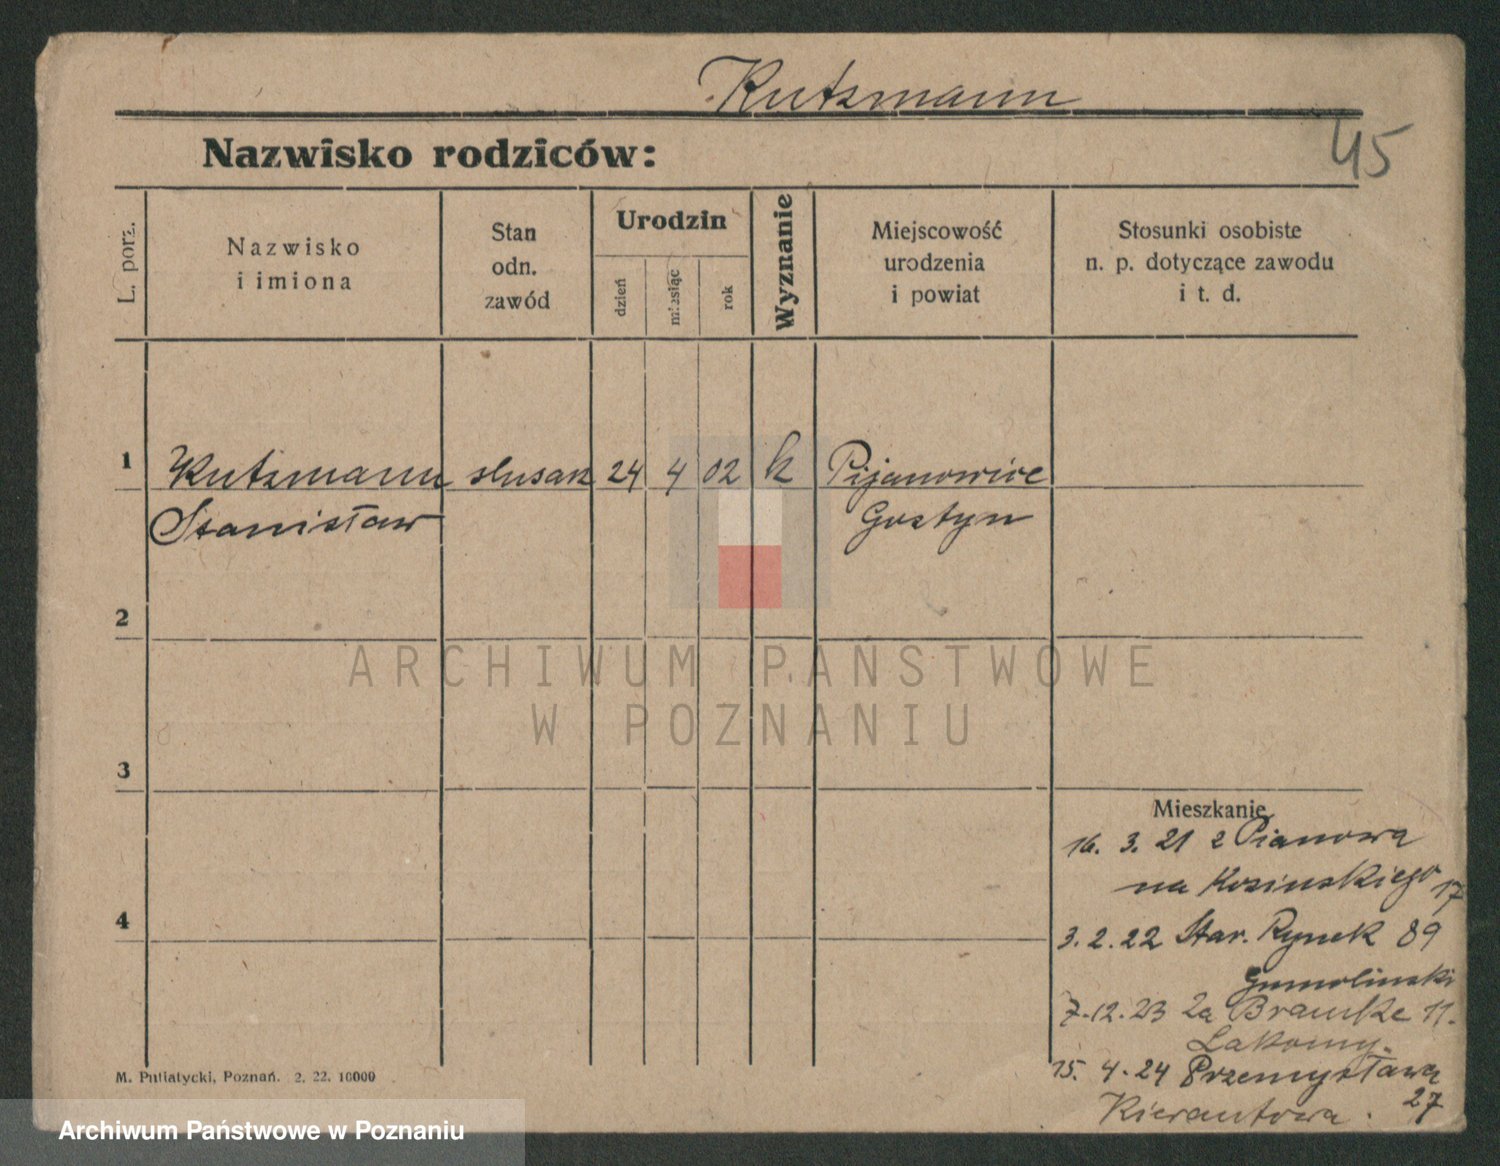 Kutzmann
45
Nazwisko rodziców:
L. porz.
Nazwisko
i imiona
Stan
odn.
zawód
Urodzin
dzień
miesiąc
rok
Wyznanie
Miejscowość
urodzenia
i powiat
Stosunki osobiste
n. p. dotyczące zawodu
i t. d.
1 Kutzmann ślusarz 24 4 02 k Pijanowice
Stanisław Gostyn
2
ARCHIWUM PAŃSTWOWE
W POZNANIU
3
Mieszkanie
16. 3. 21 z Pianowa
na Kosinskiego 17
4
3. 2. 22 Star. Rynek 89
Gomolinski
7.12.23 Za Bramke 11.
Lakomy.
15. 4. 24 Przemysława
27
Kierantowa.
M. Putiatycki, Poznań. 2. 22. 10000
Archiwum Państwowe w Poznaniu